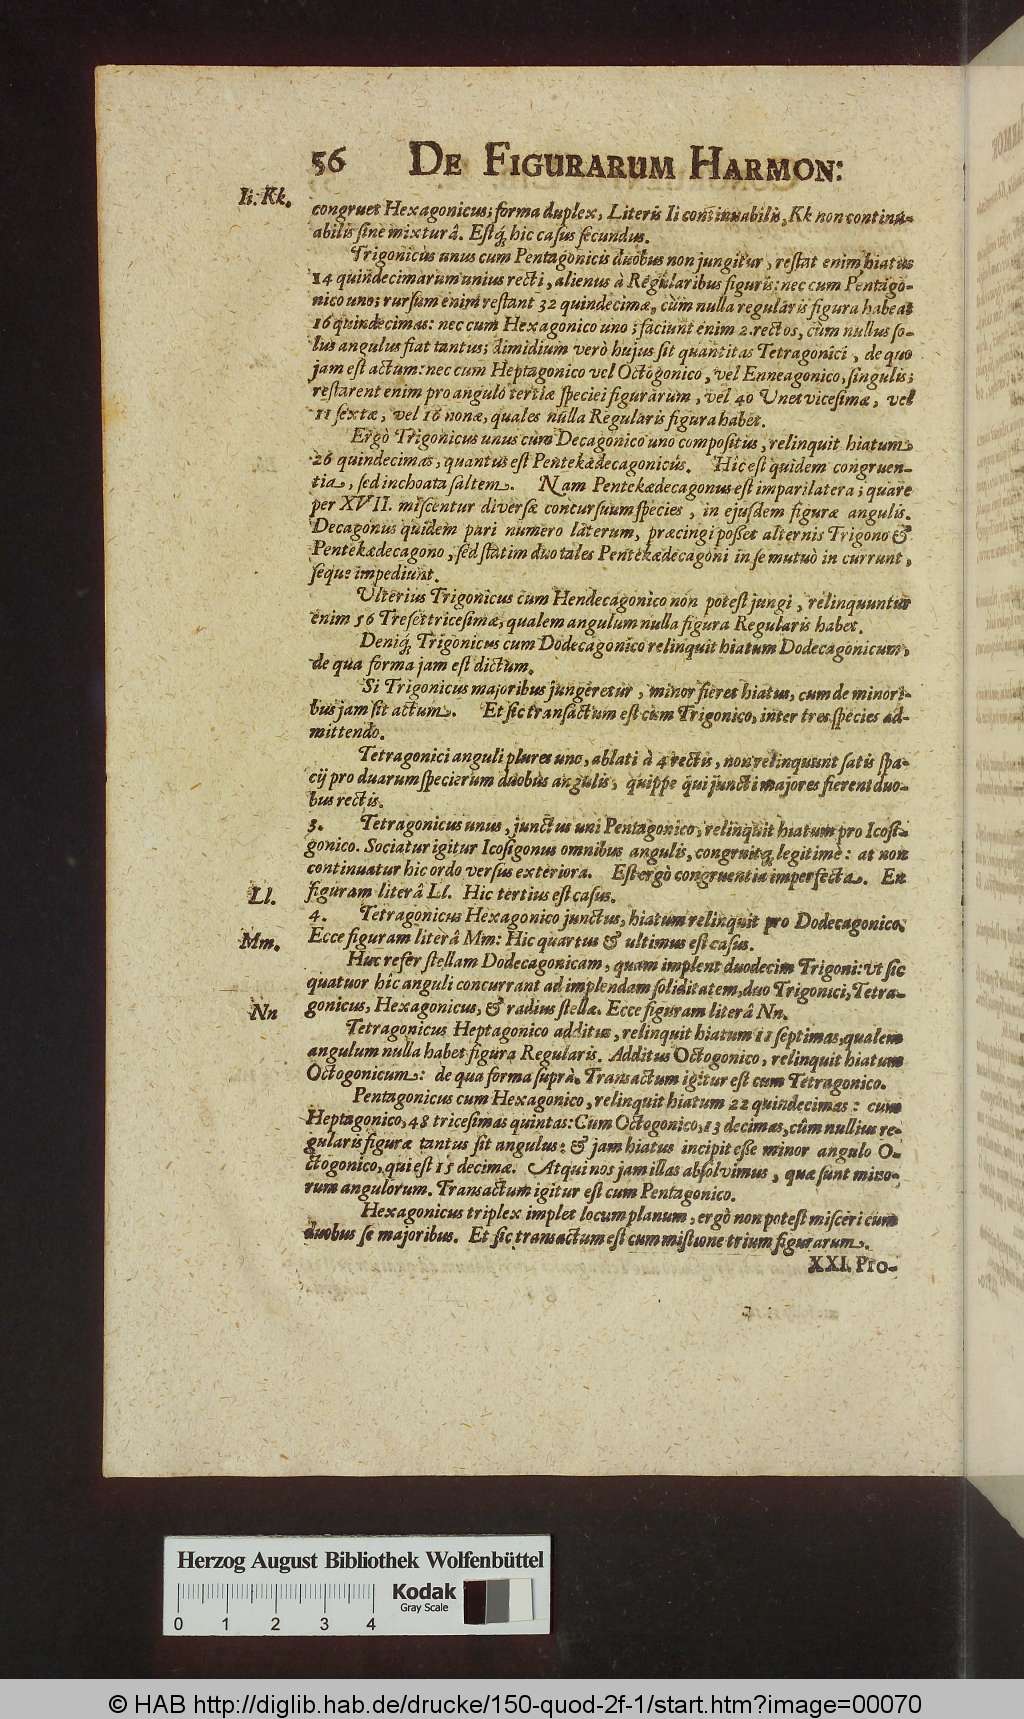 56 DE FIGURARUM HARMON:
Ii. Kk.
congruet Hexagonicus; forma duplex, Literis Ii continuabilis, Kk non continu-
abilis sine mixturâ. Estq́; hic casus secundus.
Trigonicus unus cum Pentagonicis duobus non jungitur, restat enim hiatus
14 quindecimarum unius recti, alienus à Regularibus figuris: nec cum Pentago-
nico uno; rursum enim restant 32 quindecimæ, cùm nulla regularis figura habeat
16 quindecimas: nec cum Hexagonico uno; faciunt enim 2. rectos, cùm nullus so-
lus angulus fiat tantus; dimidium verò hujus sit quantitas Tetragonici, de quo
jam est actum: nec cum Heptagonico vel Octogonico, vel Enneagonico, singulis;
restarent enim pro angulo tertiæ speciei figurarum, vel 40 Unetvicesimæ, vel
11 sextæ, vel 16 nonæ, quales nulla Regularis figura habet.
Ergò Trigonicus unus cum Decagonico uno compositus, relinquit hiatum
26 quindecimas, quantus est Pentekædecagonicus. Hic est quidem congruen-
tia, sed inchoata saltem. Nam Pentekædecagonus est imparilatera; quare
per XVII. miscentur diversæ concursuum species, in ejusdem figuræ angulis.
Decagonus quidem pari numero laterum, præcingi posset alternis Trigono &
Pentekædecagono, sed statim duo tales Pentekædecagoni in se mutuò in currunt,
seque impediunt.
Ulterius Trigonicus cum Hendecagonico non potest jungi, relinquuntur
enim 56 Tresettricesimæ, qualem angulum nulla figura Regularis habet.
Deniq́; Trigonicus cum Dodecagonico relinquit hiatum Dodecagonicum,
de qua forma jam est dictum.
Si Trigonicus majoribus jungeretur, minor fieret hiatus, cum de minori-
bus jam sit actum. Et sic transactum est cum Trigonico, inter tres species ad-
mittendo.
Tetragonici anguli plures uno, ablati à 4 rectis, non relinquunt satis spa-
cij pro duarum specierum duobus angulis, quippe qui juncti majores fierent duo-
bus rectis.
3. Tetragonicus unus, junctus uni Pentagonico, relinquit hiatum pro Icosi-
gonico. Sociatur igitur Icosigonus omnibus angulis, congruitq; legitimè: at non
continuatur hic ordo versus exteriora. Est ergò congruentia imperfecta. En
Ll. figuram literâ Ll. Hic tertius est casus.
4. Tetragonicus Hexagonico junctus, hiatum relinquit pro Dodecagonico.
Mm. Ecce figuram literâ Mm: Hic quartus & ultimus est casus.
Huc refer stellam Dodecagonicam, quam implent duodecim Trigoni: ut sic
quatuor hic anguli concurrant ad implendam soliditatem, duo Trigonici, Tetra-
Nn gonicus, Hexagonicus, & radius stellæ. Ecce figuram literâ Nn.
Tetragonicus Heptagonico additus, relinquit hiatum 11 septimas, qualem
angulum nulla habet figura Regularis. Additus Octogonico, relinquit hiatum
Octogonicum: de qua forma suprà. Transactum igitur est cum Tetragonico.
Pentagonicus cum Hexagonico, relinquit hiatum 22 quindecimas: cum
Heptagonico, 48 tricesimas quintas: Cum Octogonico, 13 decimas, cûm nullius re-
gularis figuræ tantus sit angulus: & jam hiatus incipit esse minor angulo O-
ctogonico, qui est 15 decimæ. Atqui nos jam illas absolvimus, quæ sunt mino-
rum angulorum. Transactum igitur est cum Pentagonico.
Hexagonicus triplex implet locum planum, ergò non potest misceri cum
duobus se majoribus. Et sic transactum est cum mistione trium figurarum.
XXI. Pro-
Herzog August Bibliothek Wolfenbüttel
0 1 2 3 4
Kodak
Gray Scale
© HAB http://diglib.hab.de/drucke/150-quod-2f-1/start.htm?image=00070